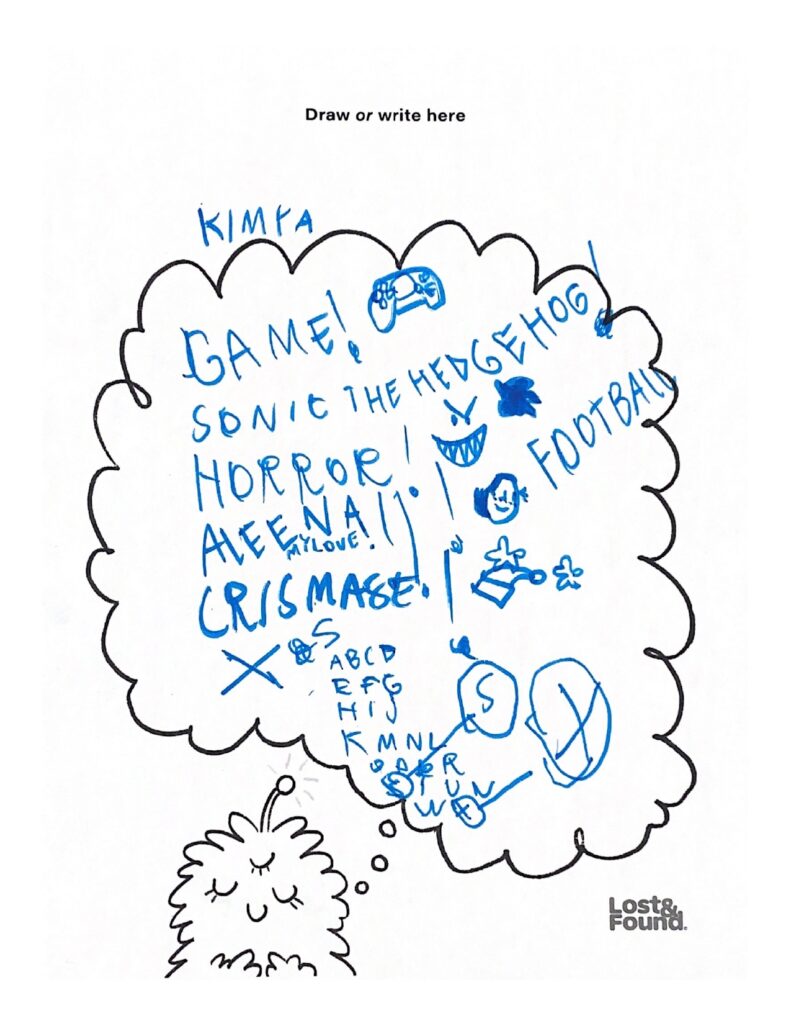 Draw or write here
KIMYA
GAME!
SONIC THE HEDGEHOG!
HORROR!
FOOTBALL
ALEENA!!
MY LOVE!
CRISMASE!
X S
ABCD
EFG
HIJ
KMNL
R
S TUV
W X
S X
Lost&
Found.